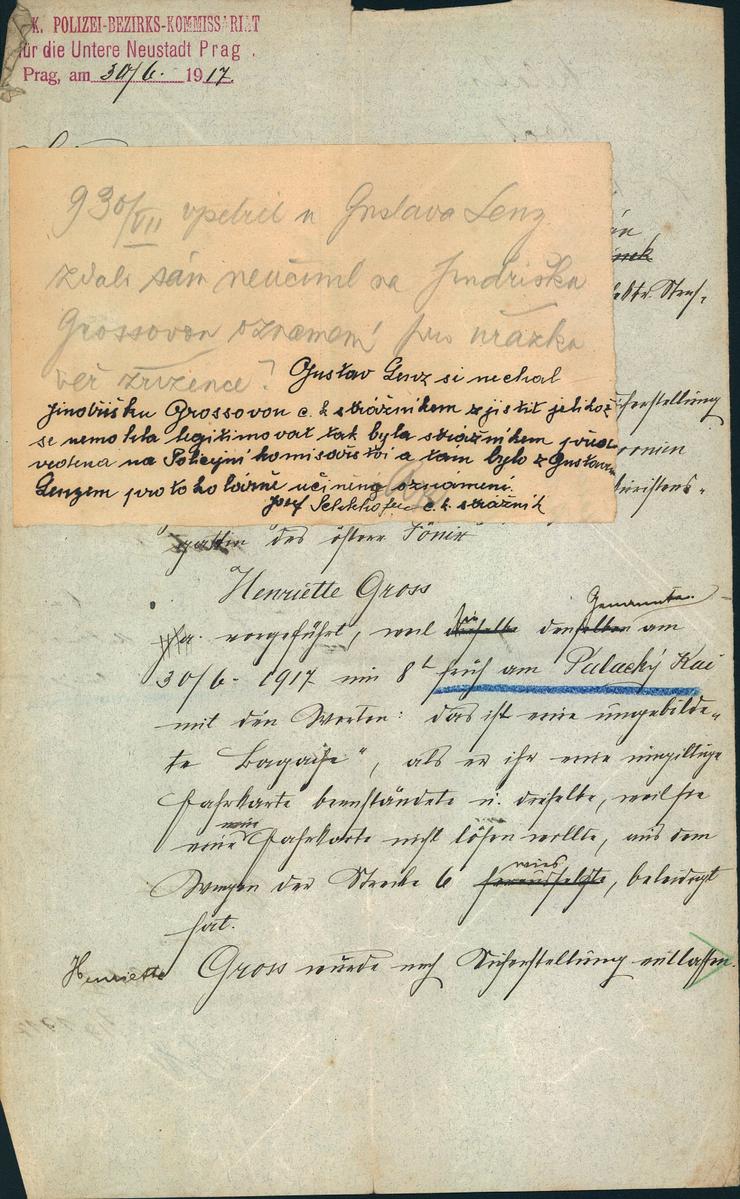 K. POLIZEI-BEZIRKS-KOMMISSARIAT
für die Untere Neustadt Prag.
Prag, am 30/6. 1917.
930/VII vyšetřil u Gustava Lenz
zdali sám neučinil na Jindřiška
Grossovou oznámení pro urážku
veř zřízence?
Gustav Lenz si nechal
Jindřišku Grossovou c. k strážníkem zjistit jelikož
se nemohla legitimovat tak byla strážníkem před
vedena na Policejní komisařství a tam bylo z Gustavem
Lenzem protokolárně učiněno oznámení.
Josef c. k. strážník
Stras-
sicherstellung
gattin des österr
Henriette Gross
vorgeführt, weil dieselbe denselben am
Genannte
30/6. 1917 um 8h früh am Palacký Kai
mit den Worten: das ist eine ungebilde-
te Bagasche", als er ihr eine ungiltige
Fahrkarte beanständete u. dieselbe, weil sie
eine neue Fahrkarte nicht lösen wollte, aus dem
Wagen der Strecke 6 wies, beleidigt
hat.
Henriette Gross wurde nach Sicherstellung entlassen.